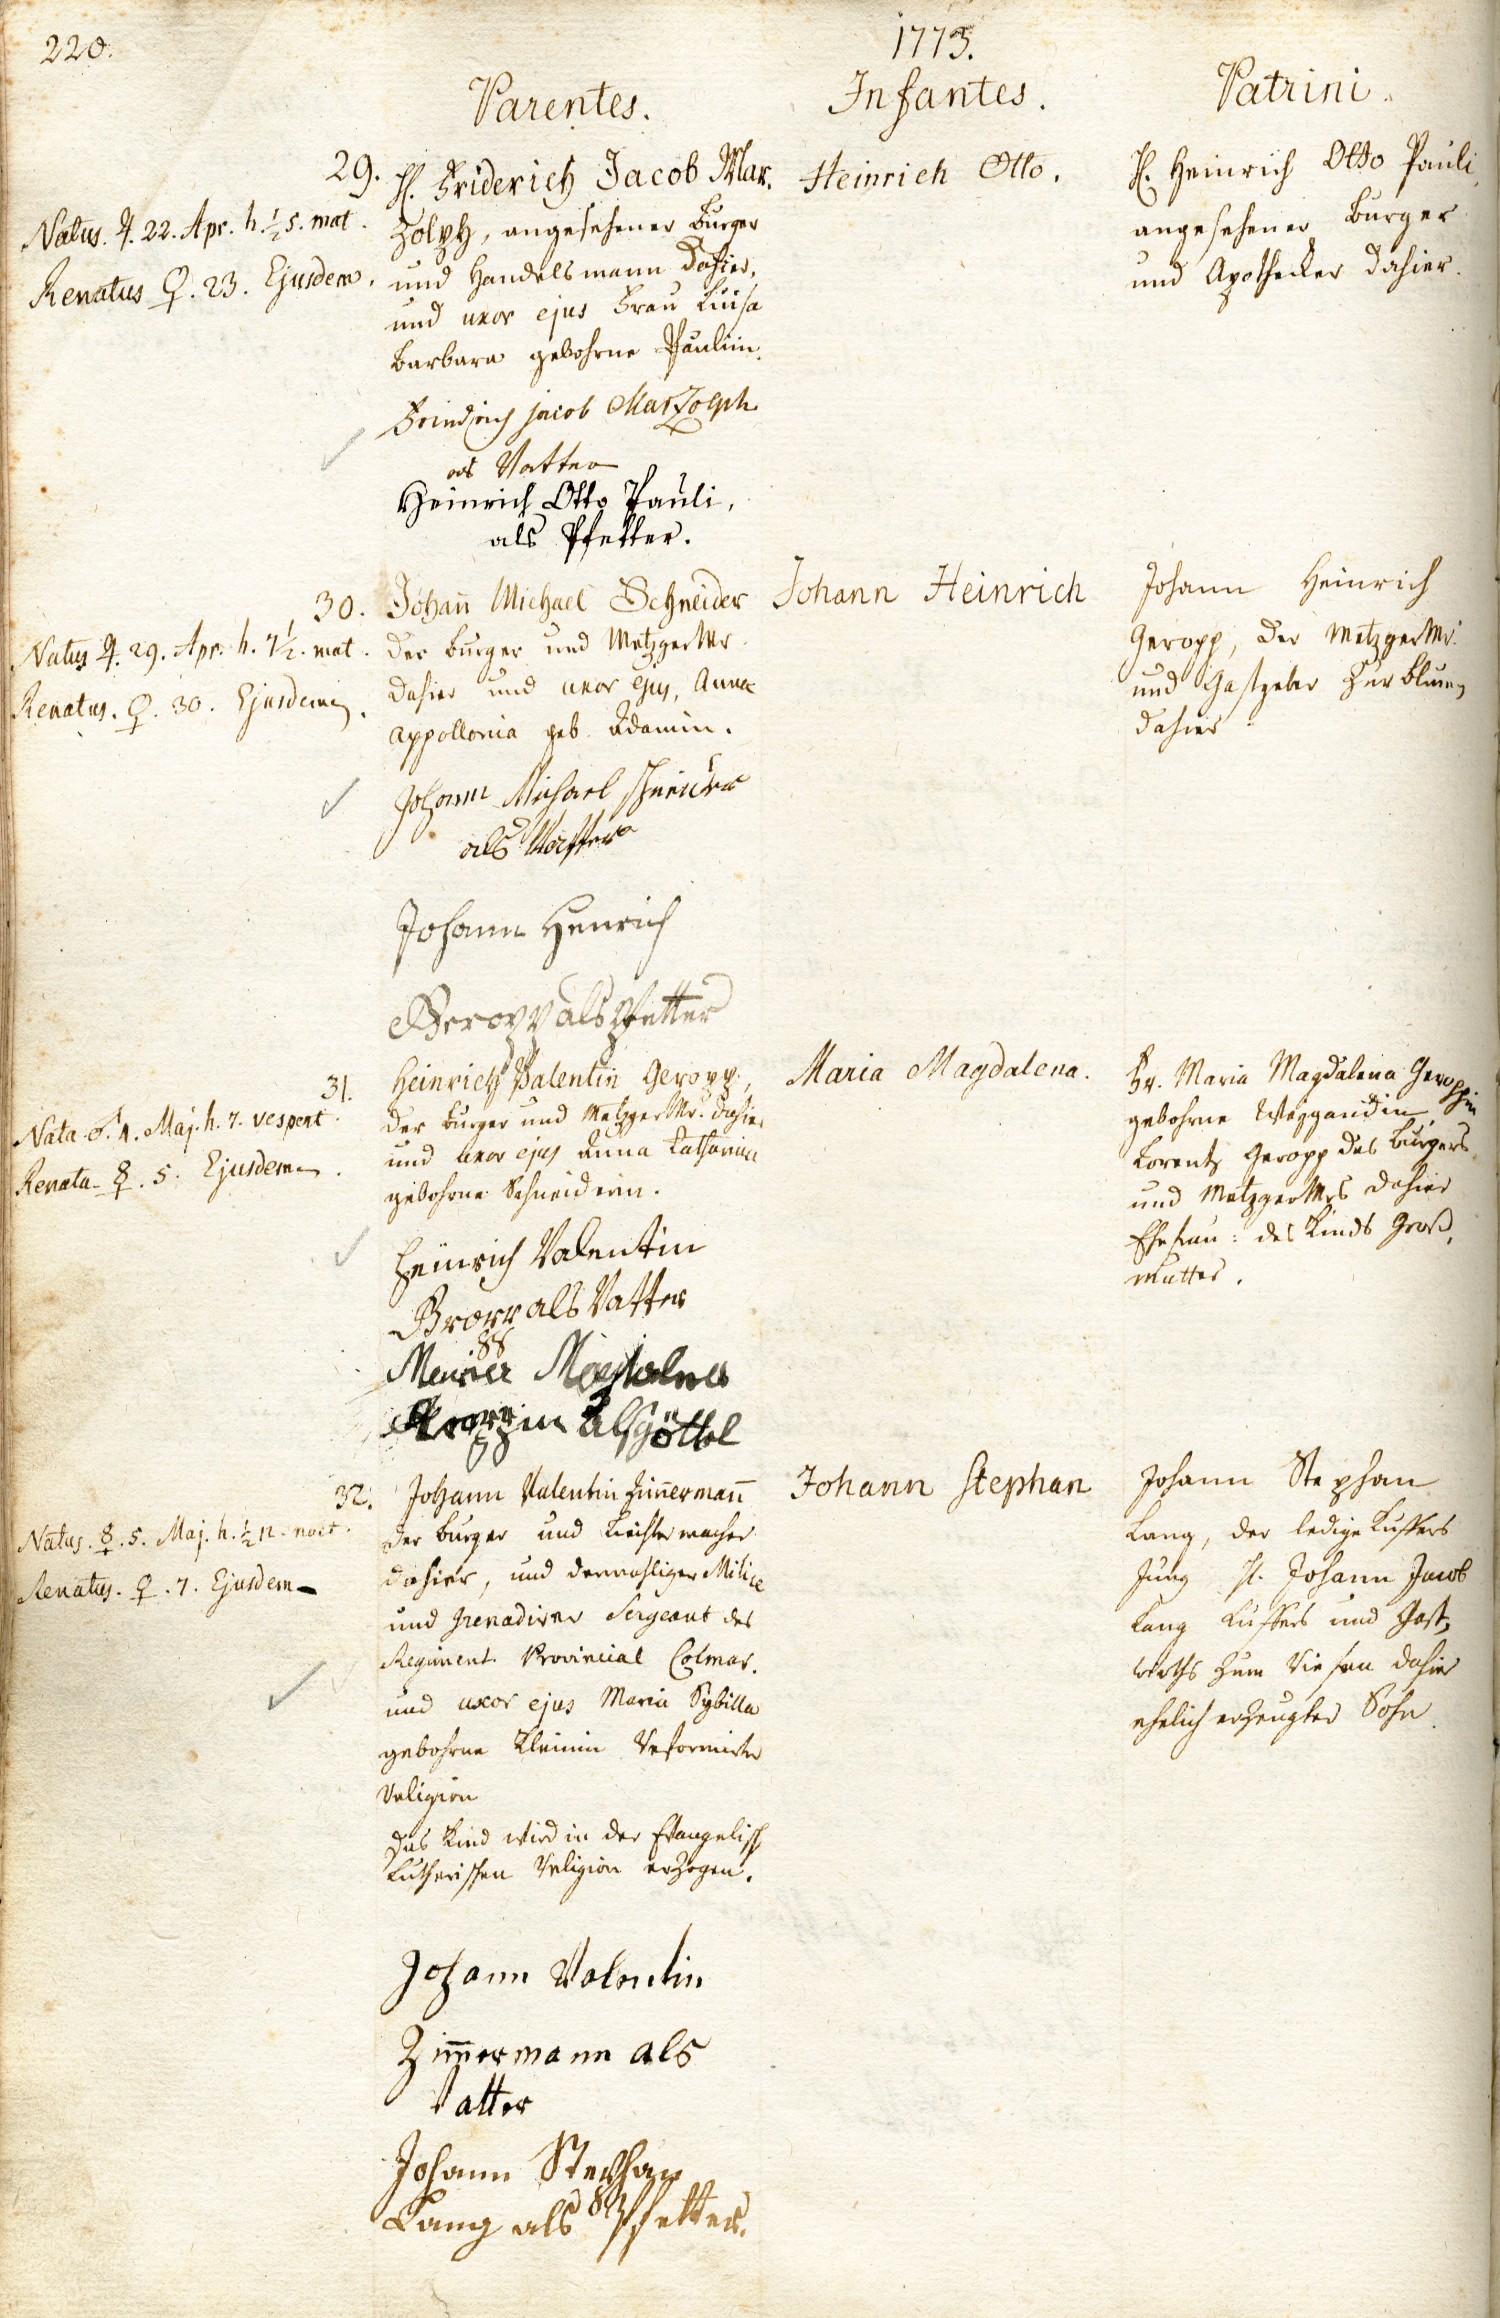 220.
1773.
Parentes.
Infantes.
Patrini.
29.
Natus. ♃. 22. Apr. h. ½ 5. mat.
Renatus ♀. 23. Ejusdem.
H. Friderich Jacob Mar-
zolph, angesehener Burger
und Handelsmann dahier,
und uxor ejus Frau Luisa
Barbara gebohrne Paulin.
Friedrich Jacob Marzolph
als Vatter
Heinrich Otto Pauli,
als Pfetter.
Heinrich Otto.
H. Heinrich Otto Pauli
angesehener Burger
und Apothecker dahier.
30.
Natus ♃. 29. Apr. h. 7½. mat.
Renatus. ♀. 30. Ejusdem.
Johan̄ Michael Schneider
der Burger und Metzger Mr.
dahier und uxor ejus, Anna
Appollonia geb. Adamin.
Johann Michael Schneider
als Vatter
Johann Henrich
Geropp als Pfetter
Johann Heinrich
Johann Heinrich
Geropp, der Metzger Mr.
und Gastgeber zur Blumen
dahier.
31.
Nata ♂. 4. Maj. h. 7. vespert.
Renata ☿. 5. Ejusdem.
Heinrich Valentin Geropp,
der Burger und Metzger Mr. dahier
und uxor ejus Anna Catharina
gebohrne Schneiderin.
Heinrich Valentin
als Vatter
Magdalena
als Göttel
Maria Magdalena.
Fr. Maria Magdalena Geroppin
gebohrne Weygandin,
Lorentz Geropp des Burgers
und Metzger Mrs dahier
Ehefrau: des Kinds Groß-
mutter.
32.
Natus. ☿. 5. Maj. h. ½ 12. noct.
Renatus. ♀. 7. Ejusdem
Johann Valentin Zim̄erman̄
der Burger und Liechtermacher
dahier, und dermahliger Milice
und Grenadirer Sergeant des
Regiment Provincial Colmar.
und uxor ejus Maria Sybilla
gebohrne Kleinin Reformirter
Religion
Das Kind wird in der Evangelisch
Lutherischen Religion erzogen.
Johann Valentin
Zim̄ermann als
Vatter
Johann Stephan
Lang als Pfetter.
Johann Stephan
Johann Stephan
Lang, der ledige Kuffers
Jung H. Johann Jacob
Lang Kuffers und Gast-
wirths zum Riesen dahier
ehelich erzeugter Sohn.